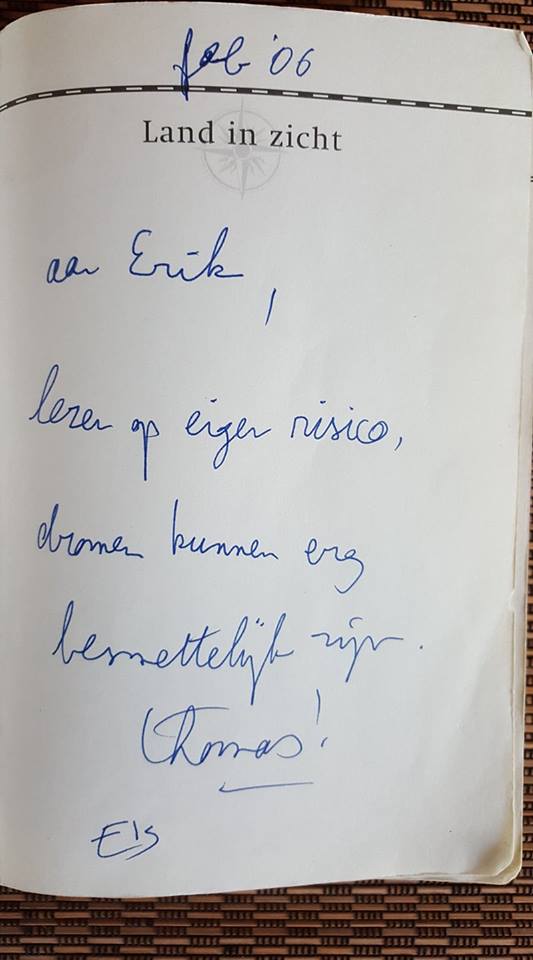 feb '06
Land in zicht
aan Erik,
lezen op eigen risico,
dromen kunnen erg
besmettelijk zijn.
Thomas!
Els